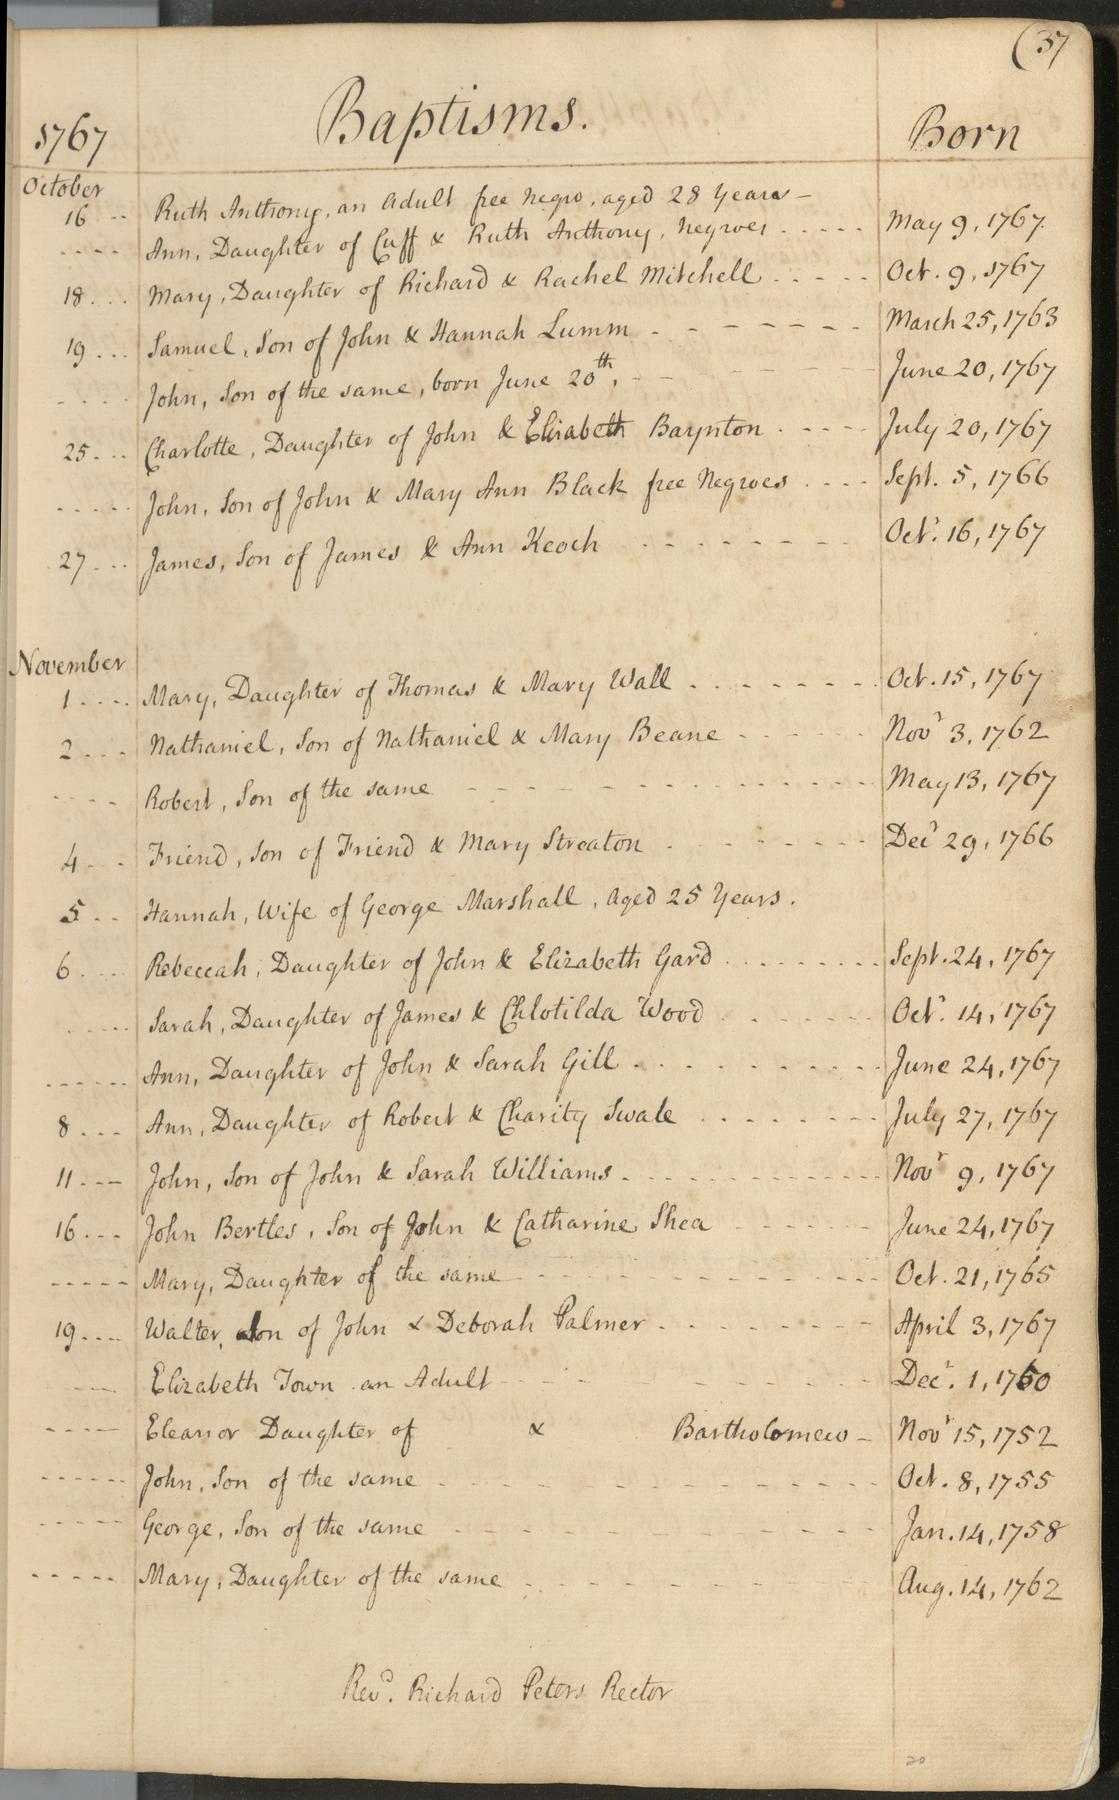 (37
1767 Baptisms. Born
October
16 -- Ruth Anthony, an Adult free Negro, aged 28 Years -
---- Ann, Daughter of Cuff & Ruth Anthony, Negroes ----- May 9, 1767.
18 ... Mary, Daughter of Richard & Rachel Mitchell ----- Oct. 9, 1767
19 ... Samuel, Son of John & Hannah Lumm - - - - - - - March 25, 1763
---- John, Son of the same, born June 20th, - - - - - - June 20, 1767
25 ... Charlotte, Daughter of John & Elisabeth Baynton ----- July 20, 1767
----- John, Son of John & Mary Ann Black free Negroes ---- Sept. 5, 1766
27 ... James, Son of James & Ann Keoch - - - - - - - - Octr. 16, 1767
November
1 .... Mary, Daughter of Thomas & Mary Wall - - - - - - - - Oct. 15, 1767
2 ... Nathaniel, Son of Nathaniel & Mary Beane - - - - - - Novr 3, 1762
---- Robert, Son of the same - - - - - - - - - - - - May 13, 1767
4 -- - Friend, Son of Friend & Mary Streaton - - - - - - - - Decr 29, 1766
5 -- Hannah, Wife of George Marshall, Aged 25 Years.
6 .... Rebeccah, Daughter of John & Elizabeth Gard ......... Sept. 24, 1767
----- Sarah, Daughter of James & Chlotilda Wood - - - - - - - Octr. 14, 1767
------ Ann, Daughter of John & Sarah Gill - - - - - - - - - - June 24, 1767
8 ... Ann, Daughter of Robert & Charity Swale - - - - - - - July 27, 1767
11 --- John, Son of John & Sarah Williams - - - - - - - - - - Novr 9, 1767
16 ... John Bertles, Son of John & Catharine Shea - - - - - - June 24, 1767
----- Mary, Daughter of the same - - - - - - - - - - - Oct. 21, 1765
19 .... Walter, Son of John & Deborah Palmer - - - - - - - - April 3, 1767
--- Elizabeth Town an Adult - - - - - - - - - - Decr. 1, 1750
---- Eleanor Daughter of & Bartholomew - Novr 15, 1752
------ John, Son of the same - - - - - - - - - - - - Oct. 8, 1755
------ George, Son of the same - - - - - - - - - - - - Jan. 14, 1758
----- Mary, Daughter of the same - - - - - - - - - - Aug. 14, 1762
Revd. Richard Peters Rector
20